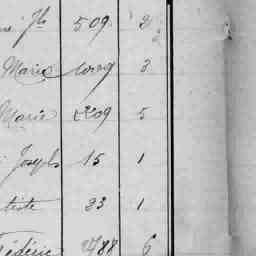 Jh 509 2
Marie 3
Marie 5
Joseph 15 1
tiste 33 1
Frédéric 88 6